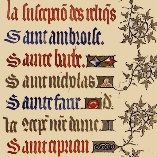 la susception des reliqs
Saint ambroise.
Sainte barbe.
Saint nicholas
Sainte fare. d.
la 9cepcion nre dame
Saint ciprian